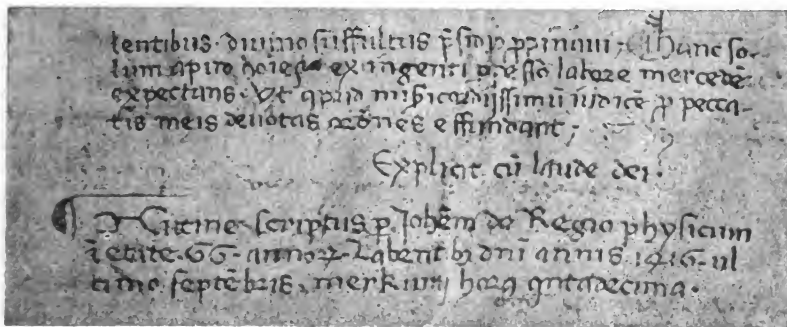 lentibus. divino suffultus p̄sidio ꝓpinaui; Hanc so-
lum apud hoīes ex ingenti labore mercedē
expectans. Vt apud misicordijssimū iudicē ꝓ pecca-
tis meis deuotas orōnes effundant;
Explicit cū laude dei.
Vticine scriptus ꝑ Johēm de Regio physicum
ī etate. 66. annoꝝ Labentibꝫ dnī annis. 1416. vl
timo septēbris, merkurij hora qntadecima.